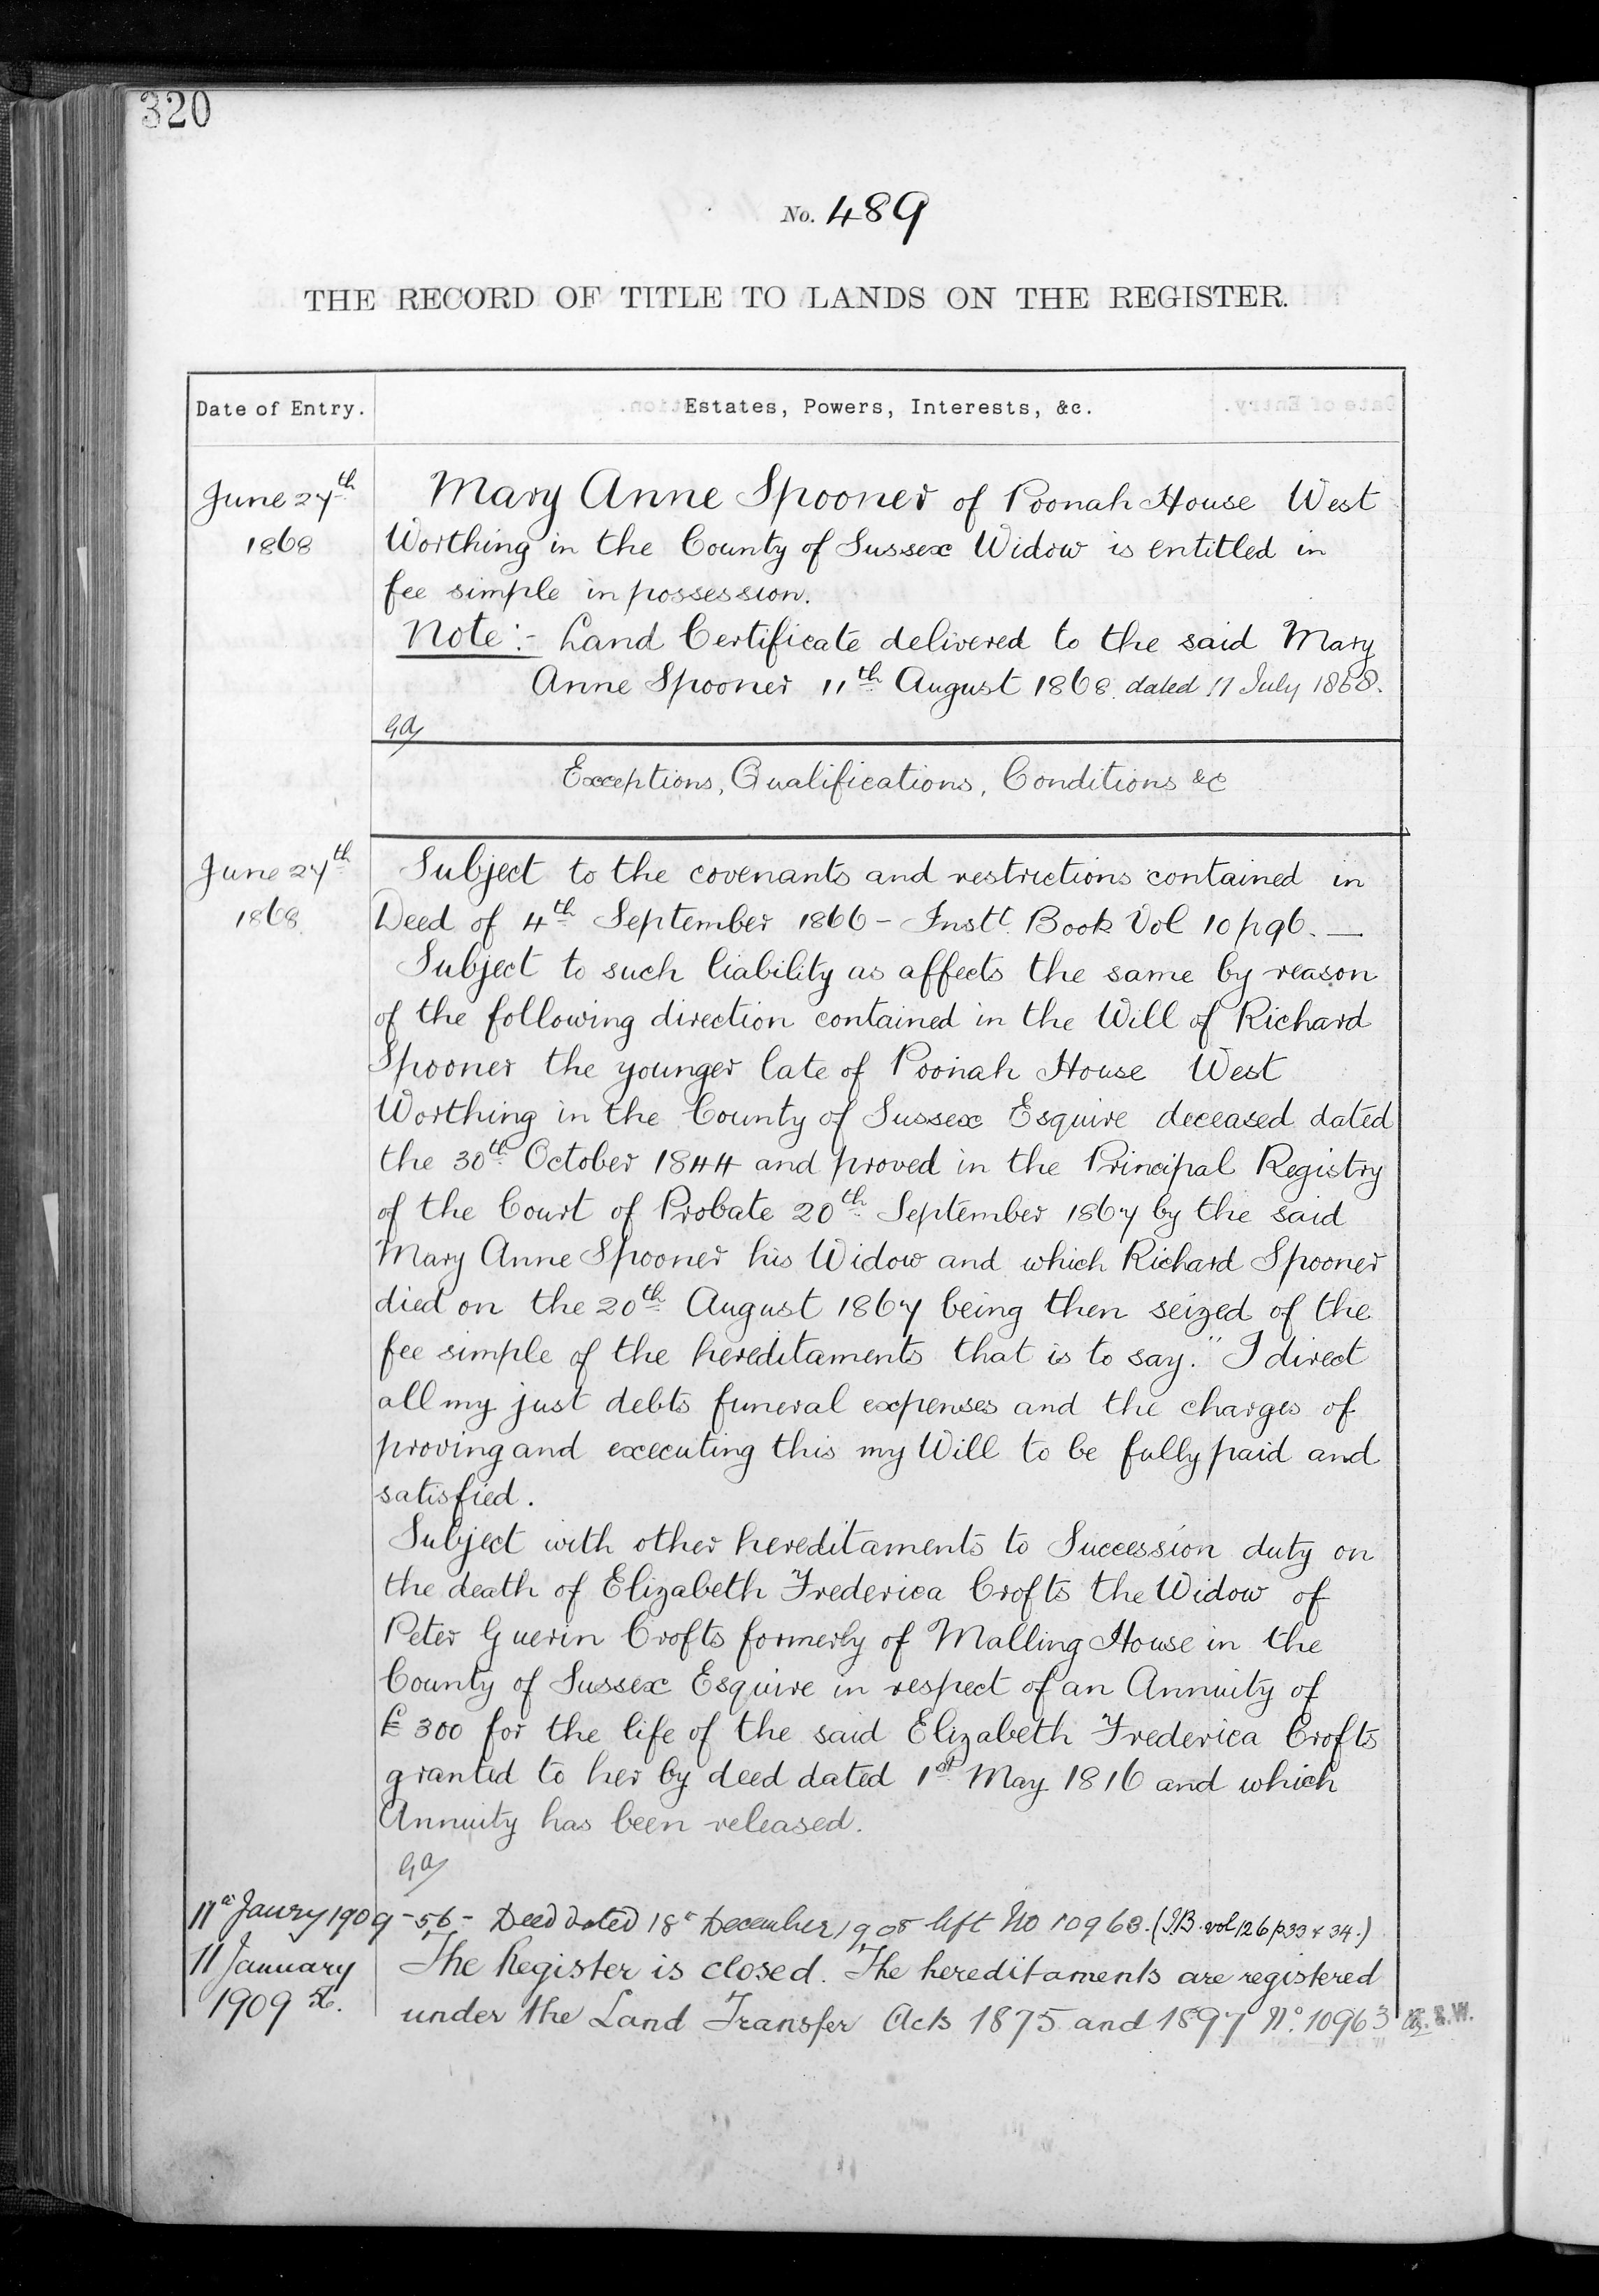 320
No. 489
THE RECORD OF TITLE TO LANDS ON THE REGISTER.
Date of Entry.
Estates, Powers, Interests, &c.
June 27th
1868
Mary Anne Spooner of Poonah House West
Worthing in the County of Sussex Widow is entitled in
fee simple in possession.
Note:- Land Certificate delivered to the said Mary
Anne Spooner 11th August 1868. dated 11 July 1868.
Exceptions, Qualifications, Conditions &c
June 27th
1868
Subject to the covenants and restrictions contained in
Deed of 4th September 1866 - Instt. Book Vol 10 p 96. —
Subject to such liability as affects the same by reason
of the following direction contained in the Will of Richard
Spooner the younger late of Poonah House West
Worthing in the County of Sussex Esquire deceased dated
the 30th October 1844 and proved in the Principal Registry
of the Court of Probate 20th September 1867 by the said
Mary Anne Spooner his Widow and which Richard Spooner
died on the 20th August 1867 being then seized of the
fee simple of the hereditaments that is to say. "I direct
all my just debts funeral expenses and the charges of
proving and executing this my Will to be fully paid and
satisfied.
Subject with other hereditaments to Succession duty on
the death of Elizabeth Frederica Crofts the Widow of
Peter Guerin Crofts formerly of Malling House in the
County of Sussex Esquire in respect of an Annuity of
£300 for the life of the said Elizabeth Frederica Crofts
granted to her by deed dated 1st May 1816 and which
Annuity has been released.
11th Janry 1909 - 56 - Deed dated 18th December 1908 left No 10963. (I.B. vol 126 p 33 & 34.)
11 January
1909
The Register is closed. The hereditaments are registered
under the Land Transfer Acts 1875 and 1897 No. 10963